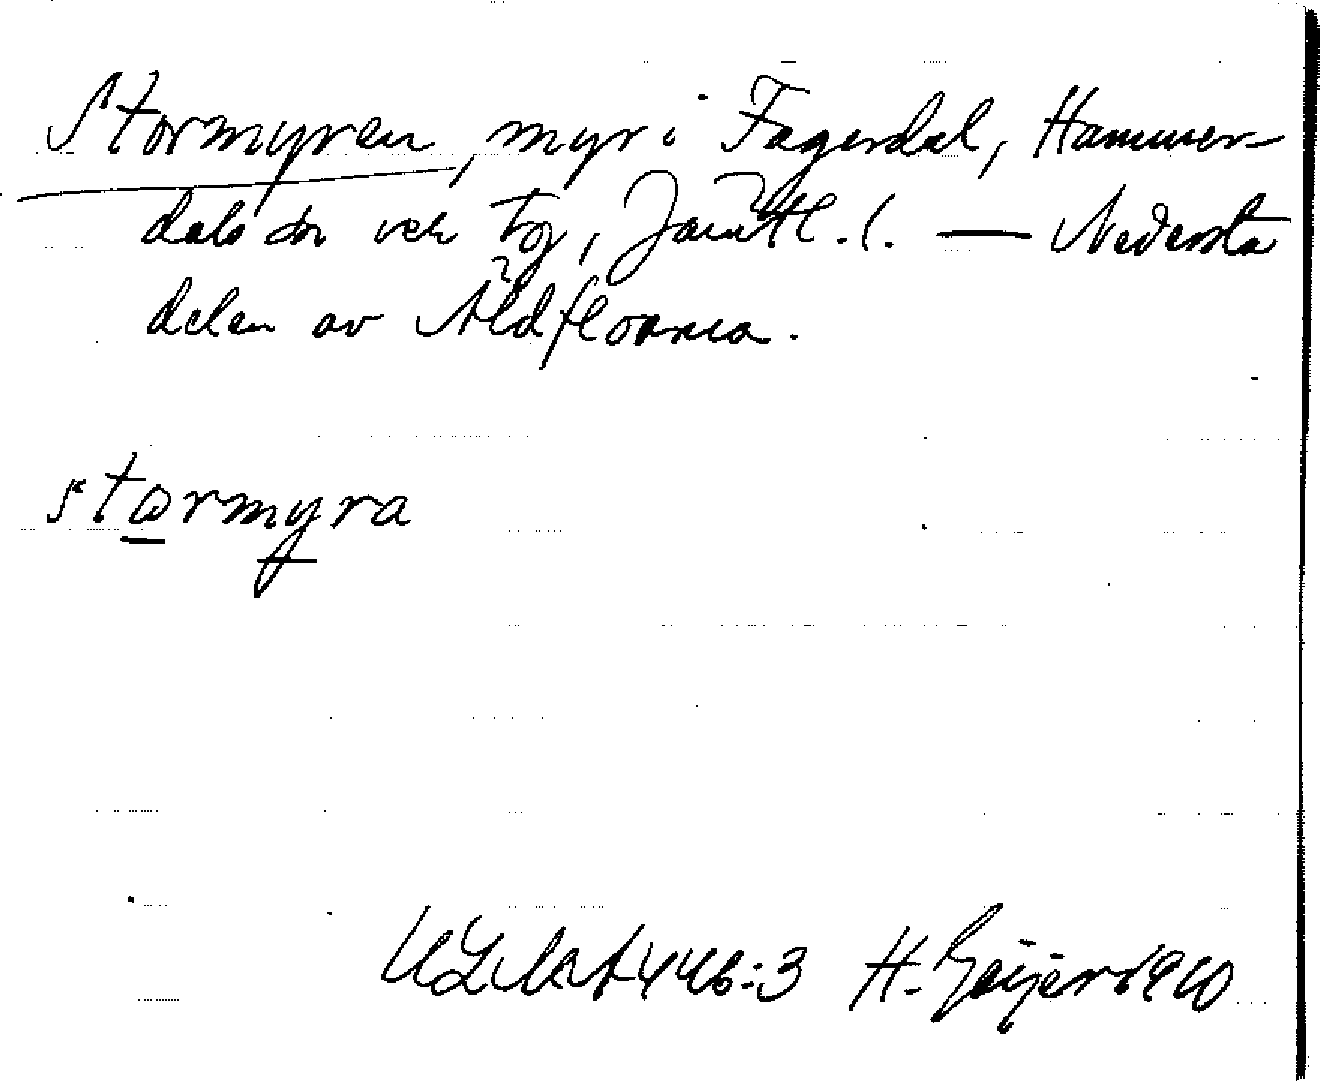 Stormyren, myr i Fagerdal, Hammer-
dals sn och tg, Jämtl. l. — Nedersta
delen av Åldfloarna.
stormyra
ULMA 446:3 H. Geijer 1910